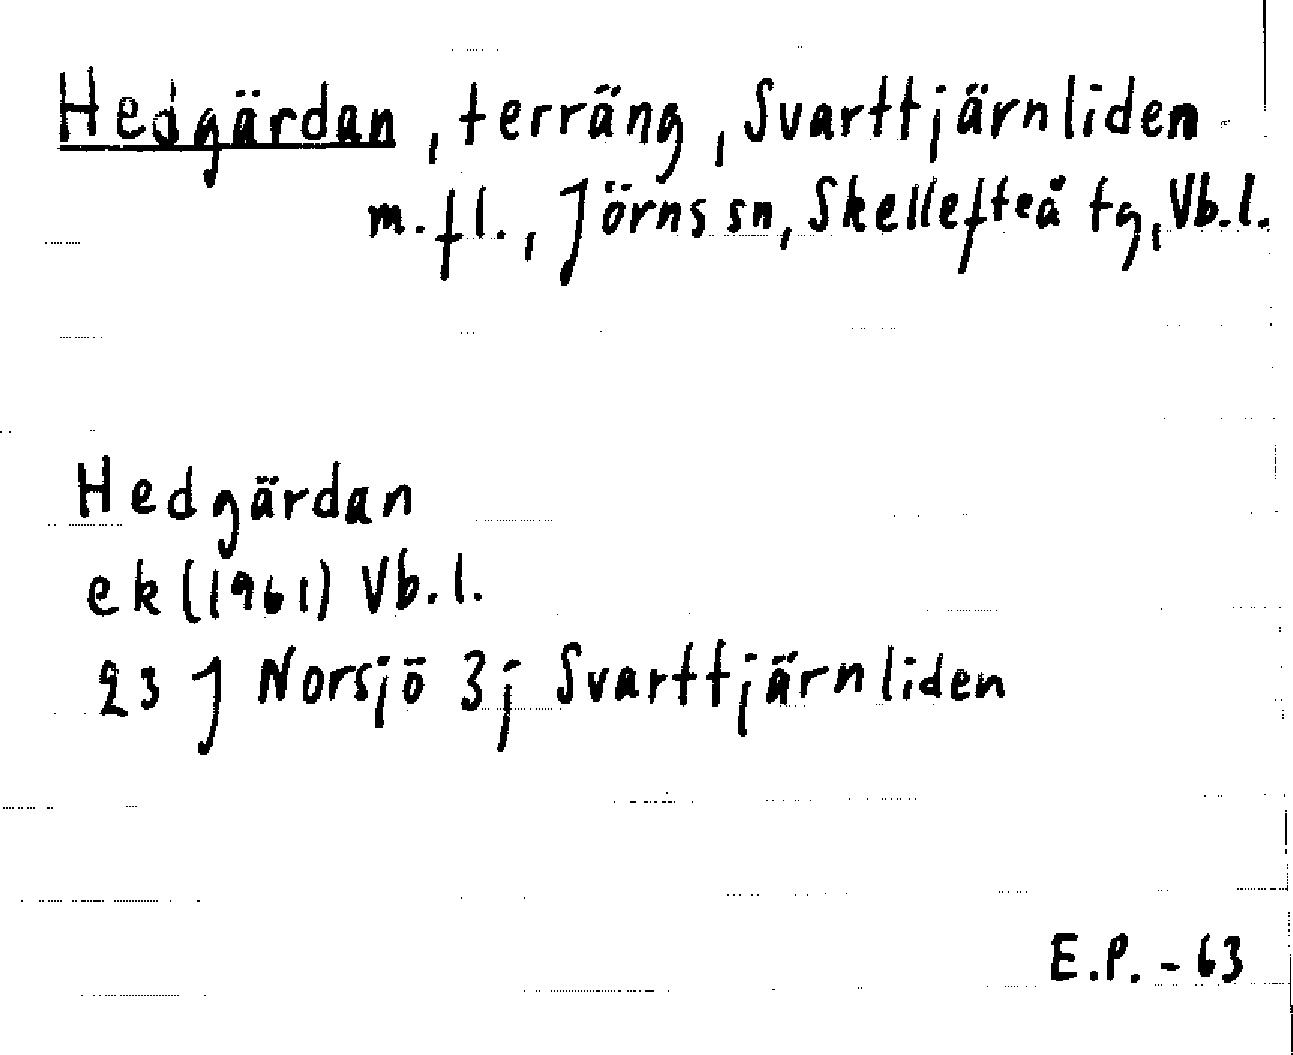 Hedgärdan, terräng, Svarttjärnliden
m.fl., Jörns sn, Skellefteå tg, Vb.l.
Hedgärdan
ek (1961) Vb.l.
23 J Norsjö 3j Svarttjärnliden
E.P. - 63